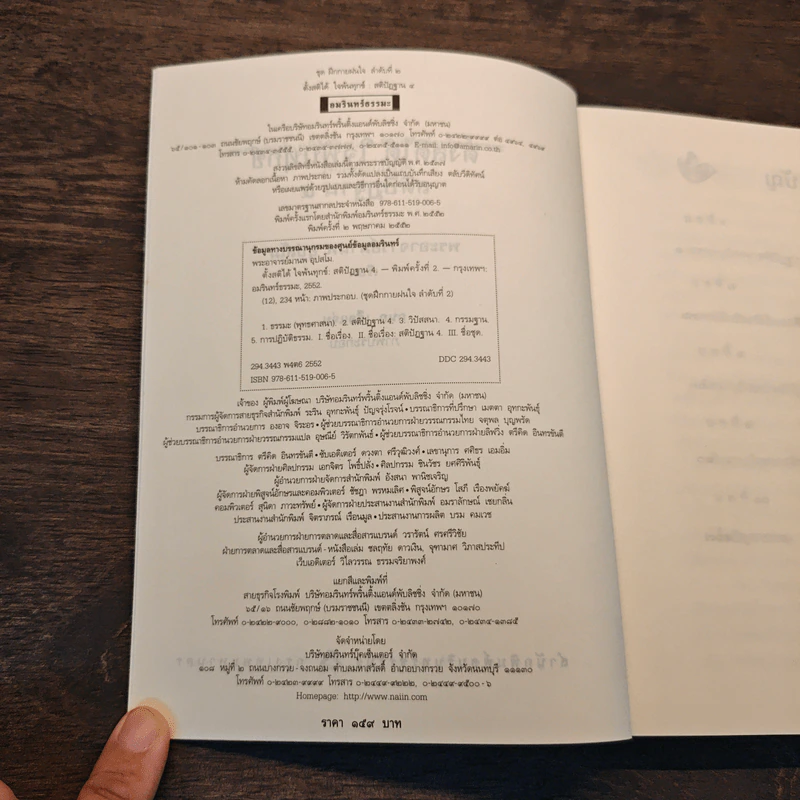 ชุด ฝึกกายฝนใจ ลำดับที่ ๒
ตั้งสติได้ ใจพ้นทุกข์ : สติปัฏฐาน ๔
อมรินทร์ธรรมะ
ในเครือบริษัทอมรินทร์พริ้นติ้งแอนด์พับลิชชิ่ง จำกัด (มหาชน)
๖๕/๑๐๑-๑๐๓ ถนนชัยพฤกษ์ (บรมราชชนนี) เขตตลิ่งชัน กรุงเทพฯ ๑๐๑๗๐ โทรศัพท์ ๐-๒๔๒๒-๙๙๙๙ ต่อ
โทรสาร ๐-๒๔๓๔-๓๕๕๕, ๐-๒๔๓๔-๓๗๗๗, ๐-๒๔๓๕-๕๑๑๑ E-mail: info@amarin.co.th
สงวนลิขสิทธิ์หนังสือเล่มนี้ตามพระราชบัญญัติ พ.ศ. ๒๕๓๗
ห้ามคัดลอกเนื้อหา ภาพประกอบ รวมทั้งดัดแปลงเป็นแถบบันทึกเสียง ตลับวีดิทัศน์
หรือเผยแพร่ด้วยรูปแบบและวิธีการอื่นใดก่อนได้รับอนุญาต
เลขมาตรฐานสากลประจำหนังสือ 978-611-519-006-5
พิมพ์ครั้งแรกโดยสำนักพิมพ์อมรินทร์ธรรมะ พ.ศ. ๒๕๕๒
พิมพ์ครั้งที่ ๒ พฤษภาคม ๒๕๕๒
ข้อมูลทางบรรณานุกรมของศูนย์ข้อมูลอมรินทร์
พระอาจารย์มานพ อุปสโม.
ตั้งสติได้ ใจพ้นทุกข์: สติปัฏฐาน 4. — พิมพ์ครั้งที่ 2. — กรุงเทพฯ:
อมรินทร์ธรรมะ, 2552.
(12), 234 หน้า: ภาพประกอบ. (ชุดฝึกกายฝนใจ ลำดับที่ 2)
1. ธรรมะ (พุทธศาสนา). 2. สติปัฏฐาน 4. 3. วิปัสสนา. 4. กรรมฐาน.
5. การปฏิบัติธรรม. I. ชื่อเรื่อง. II. ชื่อเรื่อง: สติปัฏฐาน 4. III. ชื่อชุด.
294.3443 พ4ต6 2552 DDC 294.3443
ISBN 978-611-519-006-5
เจ้าของ ผู้พิมพ์ผู้โฆษณา บริษัทอมรินทร์พริ้นติ้งแอนด์พับลิชชิ่ง จำกัด (มหาชน)
กรรมการผู้จัดการสายธุรกิจสำนักพิมพ์ ระริน อุทกะพันธุ์ ปัญจรุ่งโรจน์ • บรรณาธิการที่ปรึกษา เมตตา อุทกะพันธุ์
บรรณาธิการอำนวยการ องอาจ จิระอร • ผู้ช่วยบรรณาธิการอำนวยการฝ่ายวรรณกรรมไทย จตุพล บุญพรัด
ผู้ช่วยบรรณาธิการอำนวยการฝ่ายวรรณกรรมแปล อุษณีย์ วิรัตกพันธ์ • ผู้ช่วยบรรณาธิการอำนวยการฝ่ายลิฟวิ่ง ตรีคิด อินทรขันตี
บรรณาธิการ ตรีคิด อินทรขันตี • ซับเอดิเตอร์ ดวงตา ศรีวุฒิวงศ์ • เลขานุการ ศศิธร เอมอิ่ม
ผู้จัดการฝ่ายศิลปกรรม เอกจิตร โพธิ์ปลั่ง • ศิลปกรรม ชินวัชร ยศศิริพันธุ์
ผู้อำนวยการฝ่ายจัดการสำนักพิมพ์ อังสนา พานิชเจริญ
ผู้จัดการฝ่ายพิสูจน์อักษรและคอมพิวเตอร์ ชัชฎา พรหมเลิศ • พิสูจน์อักษร โสภี เรืองพยัคฆ์
คอมพิวเตอร์ สุนิตา ภาวะทรัพย์ • ผู้จัดการฝ่ายประสานงานสำนักพิมพ์ อมราลักษณ์ เชยกลิ่น
ประสานงานสำนักพิมพ์ จิตราภรณ์ เรือนมูล • ประสานงานการผลิต บรม คมเวช
ผู้อำนวยการฝ่ายการตลาดและสื่อสารแบรนด์ วรารัตน์ ศรศรีวิชัย
ฝ่ายการตลาดและสื่อสารแบรนด์ - หนังสือเล่ม ชลฤทัย ดาวเงิน, จุฑามาศ วิภาสประทีป
เว็บเอดิเตอร์ วิไลวรรณ ธรรมจริยาพงศ์
แยกสีและพิมพ์ที่
สายธุรกิจโรงพิมพ์ บริษัทอมรินทร์พริ้นติ้งแอนด์พับลิชชิ่ง จำกัด (มหาชน)
๖๕/๑๖ ถนนชัยพฤกษ์ (บรมราชชนนี) เขตตลิ่งชัน กรุงเทพฯ ๑๐๑๗๐
โทรศัพท์ ๐-๒๔๒๒-๙๐๐๐, ๐-๒๘๘๒-๑๐๑๐ โทรสาร ๐-๒๔๓๓-๒๗๔๒, ๐-๒๔๓๔-๑๓๘๕
จัดจำหน่ายโดย
บริษัทอมรินทร์บุ๊คเซ็นเตอร์ จำกัด
๑๐๘ หมู่ที่ ๒ ถนนบางกรวย - จงถนอม ตำบลมหาสวัสดิ์ อำเภอบางกรวย จังหวัดนนทบุรี ๑๑๑๓๐
โทรศัพท์ ๐-๒๔๒๓-๙๙๙๙ โทรสาร ๐-๒๔๔๙-๙๒๒๒, ๐-๒๔๔๙-๙๕๐๐ - ๖
Homepage: http://www.naiin.com
ราคา ๑๕๙ บาท